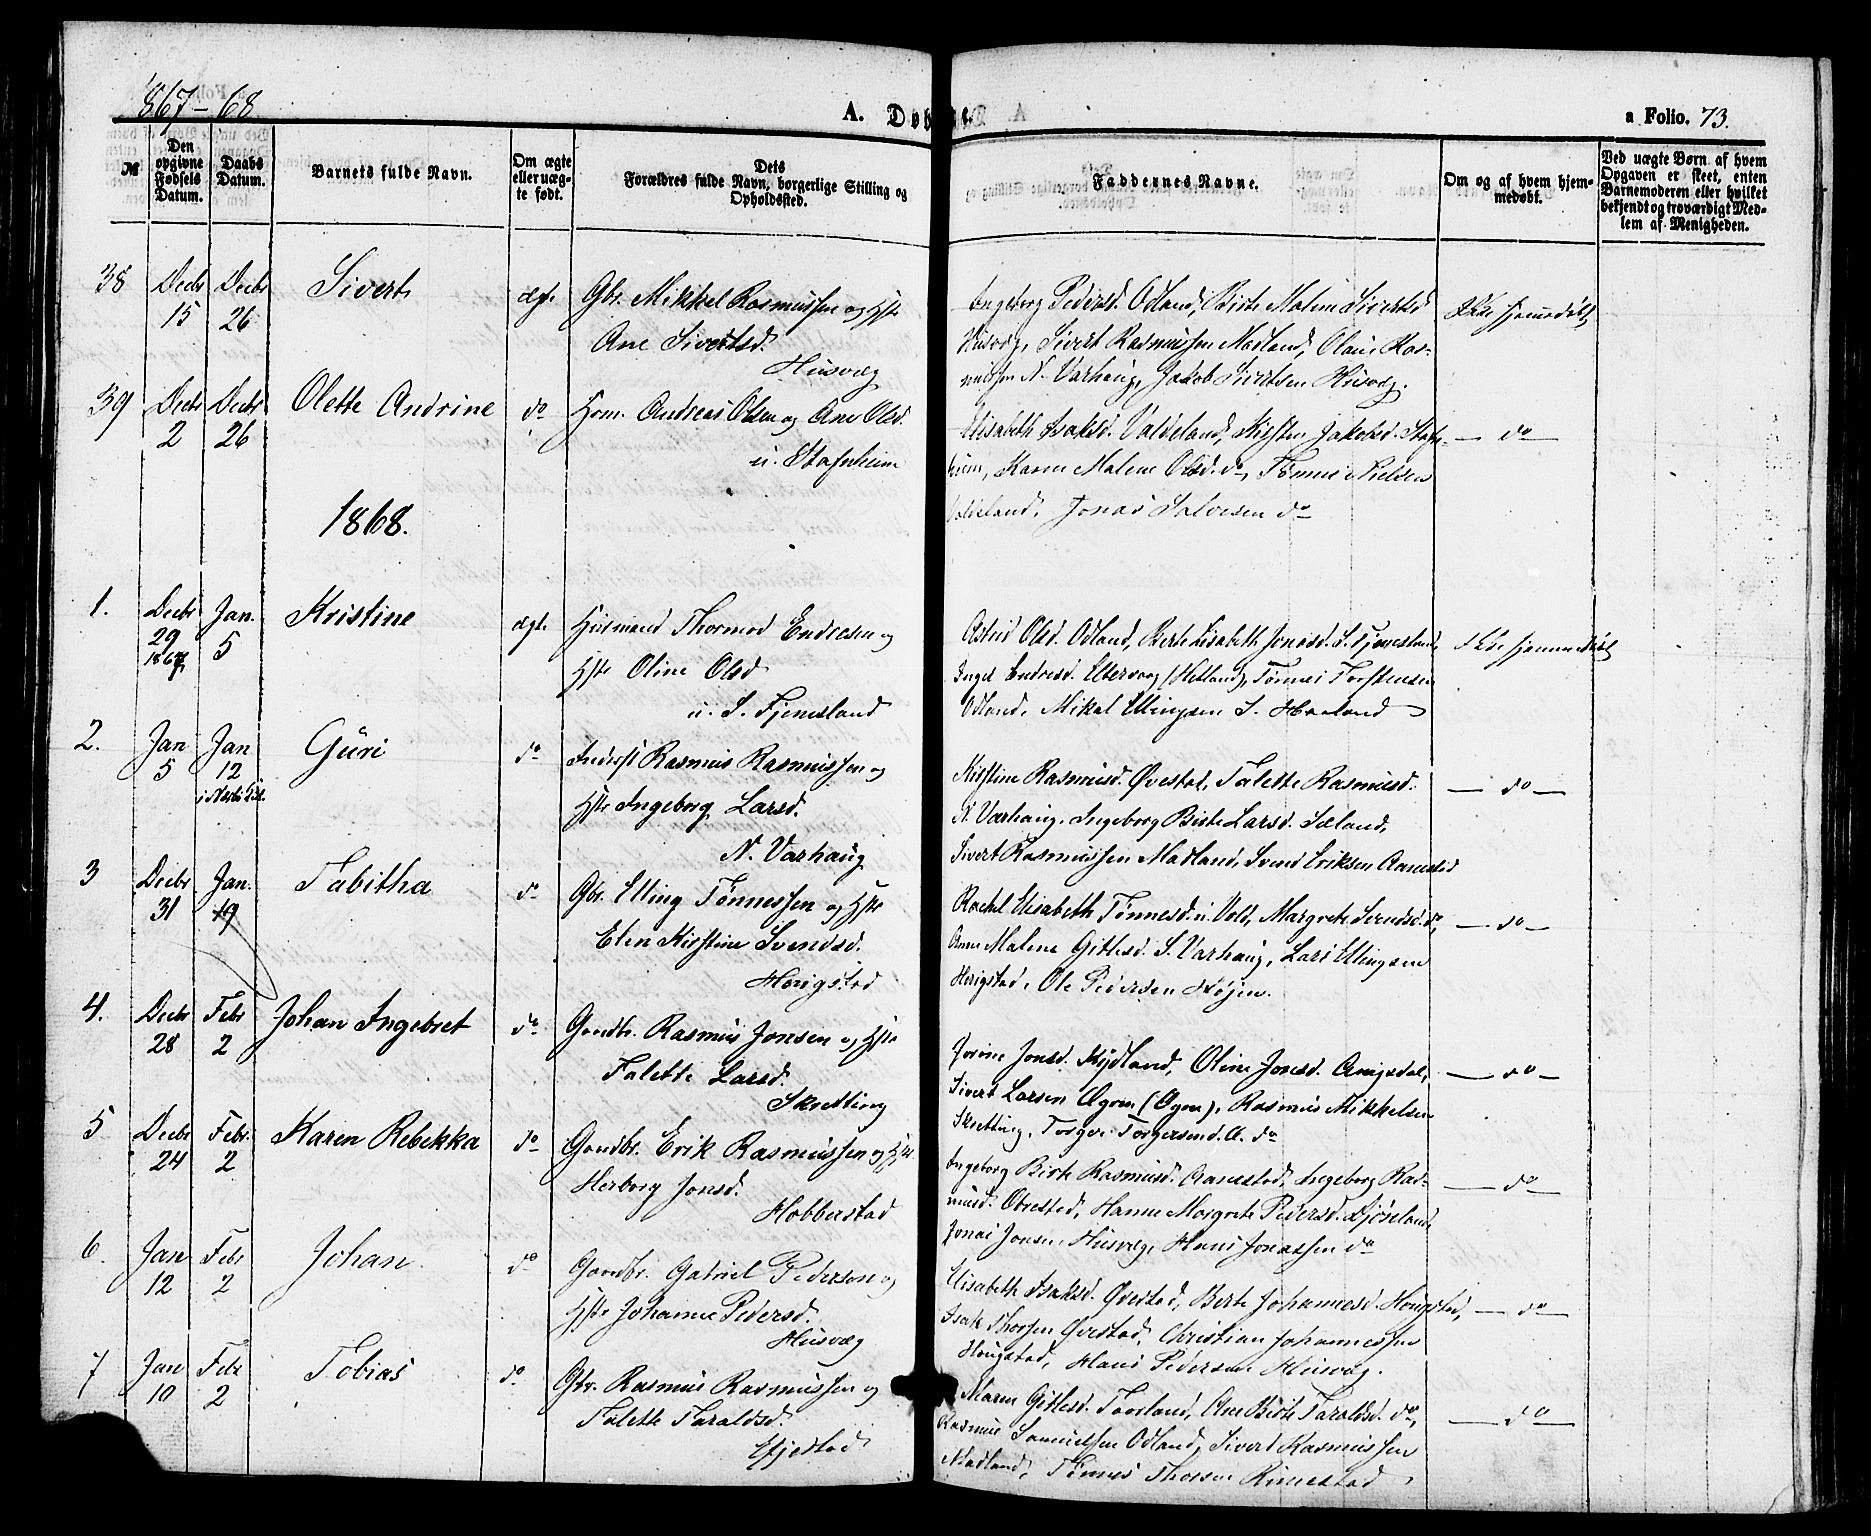 1867-68
A. Døbte.
a Folio. 73.
№
Den opgivne Fødsels Datum.
Daabs Datum.
Barnets fulde Navn.
Om ægte eller uægte født.
Dets Forældres fulde Navn, borgerlige Stilling og Opholdssted.
Faddernes Navne.
Om og af hvem hjemmedøbt.
Ved uægte Børn af hvem Opgaven er skeet, enten Barnemoderen eller hvilket bekjendt og troværdigt Medlem af Menigheden.
38 Decbr 15 Decbr 26 Sivert ægt. Gbr. Mikkel Rasmussen og Hstr
Ane Sivertsd.
Husvæg
Ingeborg Pedersd. Odland, Birte Malene Sivertsd
Husvæg, Sivert Rasmussen Madland, Olaus Ras-
mussen N. Varhaug, Jakob Sivertsen Husvæg.
Ikke hjemmedøbt
39 Decbr 2 Decbr 26 Olette Andrine do Hsm. Andreas Olsen og Ane Olsd.
u. Stafnheim
Elisabeth Isaksd. Valdeland, Kirsten Jakobsd. Stafn-
heim, Karen Malene Olsd. do, Tønnes Nielsen
Valdeland, Jonas Salvesen do
— do —
1868.
1. Decbr 29 1867 Jan. 5 Kristine ægt. Husmand Thormod Endresen og
Hstr Oline Olsd
u. S. Fjemesland
Astrid Olsd. Odland, Berte Lisabeth Jonasd. S. Fjemesland,
Inger Endresd. (Hetland), Tønnes Torstensen
Odland, Mikal Ellingsen S. Haaland
Ikke hjemmedøbt
2. Jan 5 Jan 12 i Nærbø K. Guri do Inderst Rasmus Rasmussen og
Hstr Ingeborg Larsd.
N. Varhaug
Kirstine Rasmusd. Øvestad, Talette Rasmusd.
N. Varhaug, Ingeborg Birte Larsd. Sæland,
Sivert Rasmussen Madland, Svend Eriksen Aanestad
— do —
3 Decbr 31 Jan. 19 Tabitha do Gbr. Elling Tønnessen og Hstr
Elen Kirstine Svendsd.
Hougstad
Rakel Elisabeth Tønnesd. u. Vold, Margrete Svendsd. do,
Anne Malene Gitlesd. S. Varhaug, Lars Ellingsen
Herigstad, Ole Pedersen Højen.
— do —
4. Decbr 28 Febr 2 Johan Ingebret do Gaardbr. Rasmus Jonsen og Hstr
Talette Larsd.
Skretting
Jorine Jonsd. Rydland, Oline Jonsd. Aarigsdal,
Sivert Larsen Øgrem (Øgre), Rasmus Mikkelsen
Skretting, Torger Torgersen d. Æ. do
— do —
5 Decbr 24 Febr. 2 Karen Rebekka do Gaardbr. Erik Rasmussen og Hstr
Herborg Jonsd.
Hobberstad
Ingeborg Birte Rasmusd. Aanestad, Ingeborg Ras-
musd. Obrestad, Hanne Margrete Pedersd. Kjøseland,
Jonas Jonsen, Husvæg, Hans Jonassen do
— do —
6. Jan 12 Febr 2 Johan. do Gaardbr. Gabriel Pedersen og
Hstr Johanne Pedersd.
Husvæg
Elisabeth Isaksd. Øvestad, Berte Johannesd. Hougstad,
Isak Thorsen Øvestad, Christian Johannessen
Hougstad, Hans Pedersen Husvæg.
— do —
7 Jan 10 Febr 2 Tobias do Gbr. Rasmus Rasmussen og
Talette Taraldsd.
Efjestad
Maren Gitlesd. Taarland, Ane Birte Taraldsd. do,
Rasmus Samuelsen Odland, Sivert Rasmussen
Madland, Tønnes Thorsen Rimestad
— do —